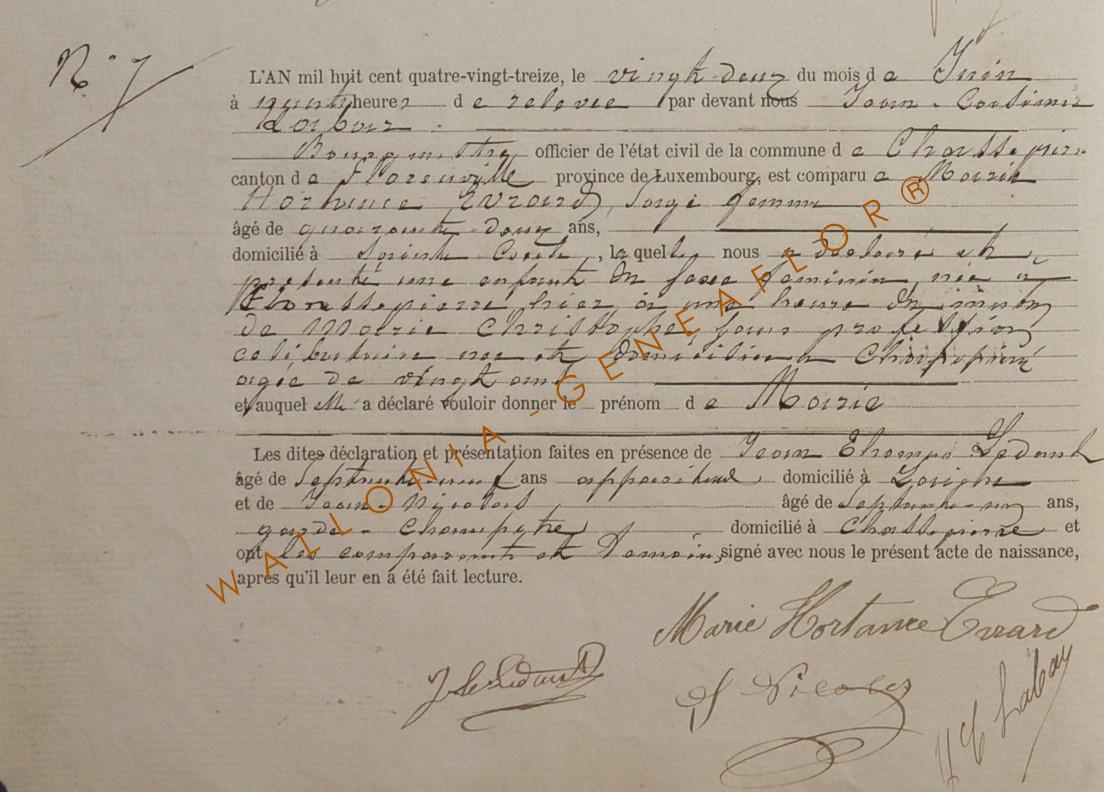 N° 7
L'AN mil huit cent quatre-vingt-treize, le vingt-deux du mois de Juin
à quatre heures de relevée par devant nous Jean - Casimir
Labair
Bourgmestre officier de l'état civil de la commune de Chassepierre
canton de Florenville province de Luxembourg, est comparue Marie
Hortance Evrard, sage femme
âgé de quarante-deux ans,
domicilié à Sainte Cecile, laquelle nous a déclaré et
présenté une enfant du sexe féminin née à
Chassepierre hier à une heure du matin
de Marie Christophe sans profession
célibataire née et domiciliée à Chassepierre
agée de vingt ans
et auquel elle a déclaré vouloir donner le prénom de Marie
Les dites déclaration et présentation faites en présence de Jean Thomas Ledant
âgé de Septante-neuf ans domicilié à
et de Jean - Nicolas âgé de Septante-un ans,
garde - Champetre domicilié à Chassepierre et
ont les comparants et témoins signé avec nous le présent acte de naissance,
après qu'il leur en a été fait lecture.
Marie Hortance Evrard
J Nicolas
WALLONIA - GENEAFLOR®